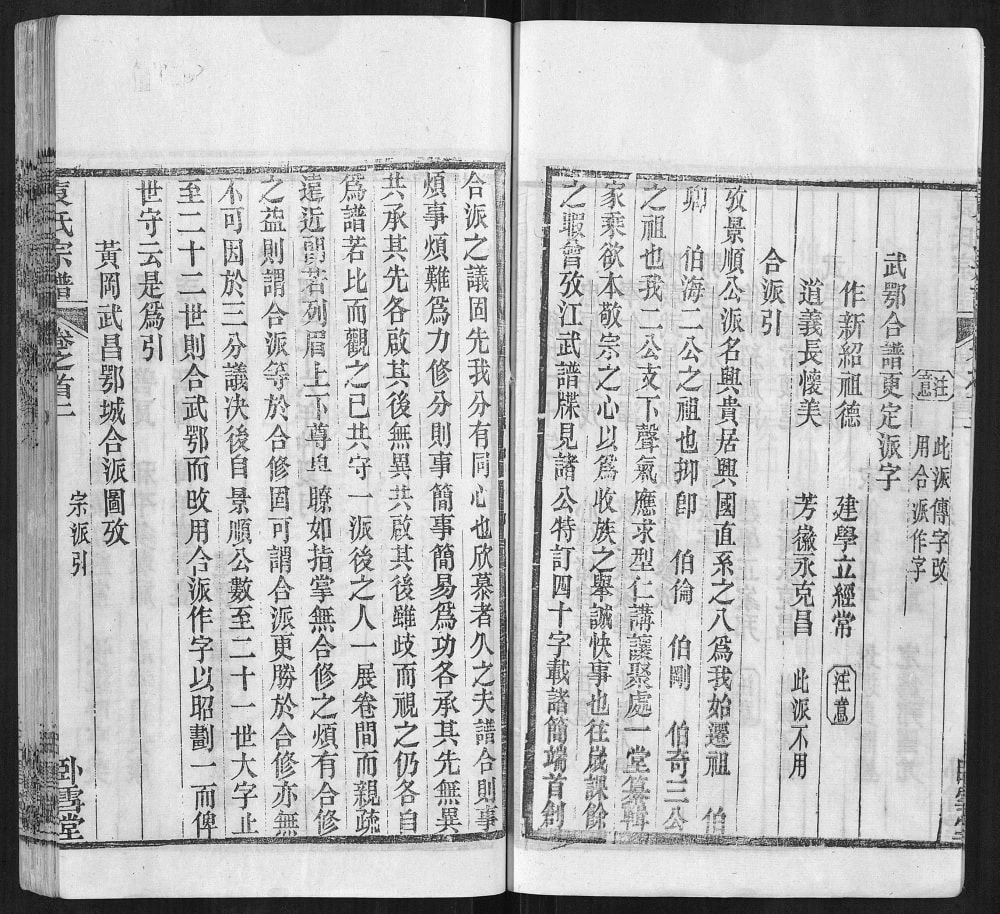 武鄂合譜更定派字 注意 此派傳字改用合派作字
作新紹祖德 建學立經常 注意
道義長懷美 芳徽永克昌 此派不用
合派引
攷景順公派名興貴居興國直系之八為我始遷祖 伯
卿 伯海二公之祖也抑卽 伯倫 伯剛 伯奇三公
之祖也我二公支下聲氣應求型仁講讓聚處一堂纂輯
家乘欲本敬宗之心以爲收族之舉誠快事也往歲課餘
之暇曾攷江武譜牒見諸公特訂四十字載諸簡端首創
合派之議固先我分有同心也欣慕者久之夫譜合則事
煩事煩難爲力修分則事簡事簡易爲功各承其先無異
共承其先各啟其後無異共啟其後雖歧而視之仍各自
爲譜若比而觀之已共守一派後之人一展卷間而親疏
遠近閱若列眉上下尊卑瞭如指掌無合修之煩有合修
之益則謂合派等於合修固可謂合派更勝於合修亦無
不可因於三分議决後自景順公數至二十一世大字止
至二十二世則合武鄂而改用合派作字以昭劃一而俾
世守云是爲引
黃岡武昌鄂城合派圖攷
氏宗譜 卷之首二 宗派引 臥雲堂